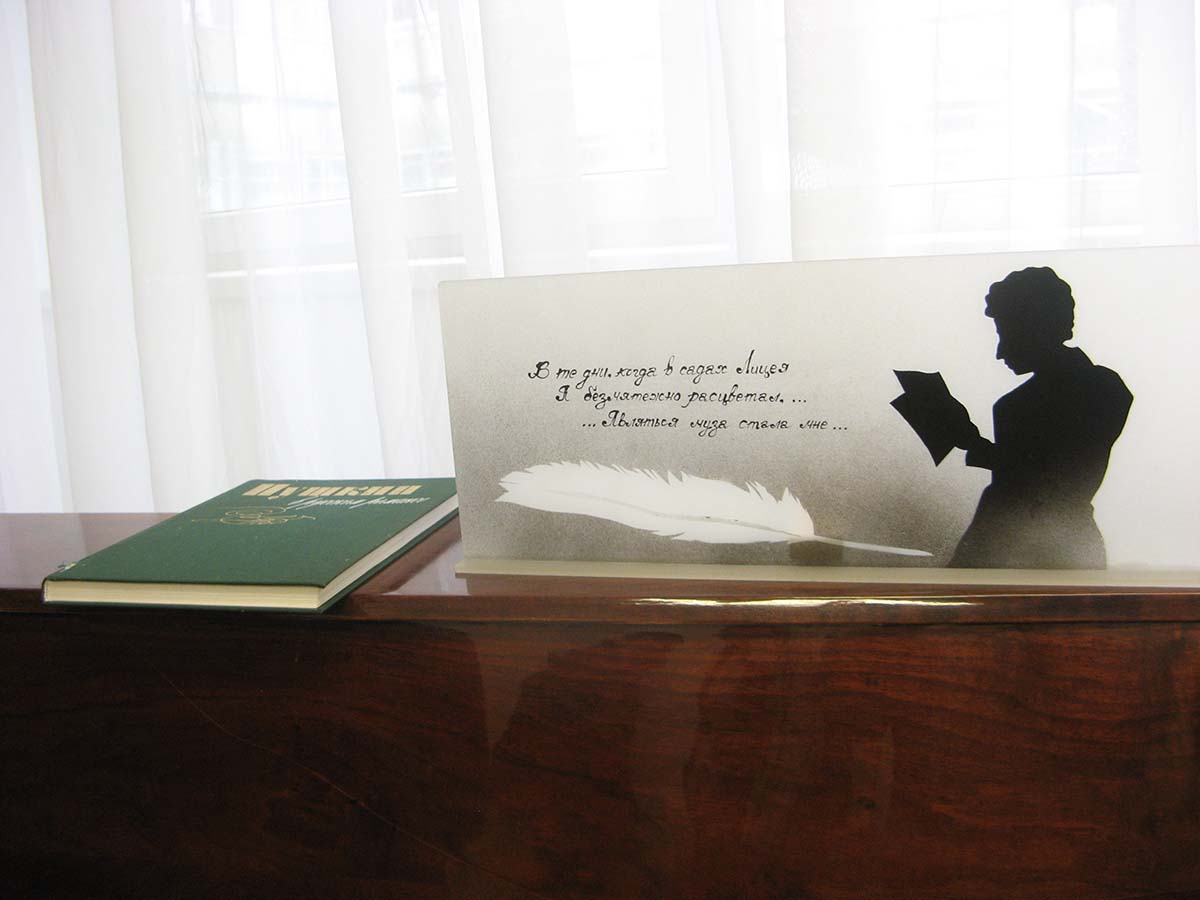 Пушкин
и русский романс
В те дни, когда в садах Лицея
Я безмятежно расцветал, ...
... Являться муза стала мне ...